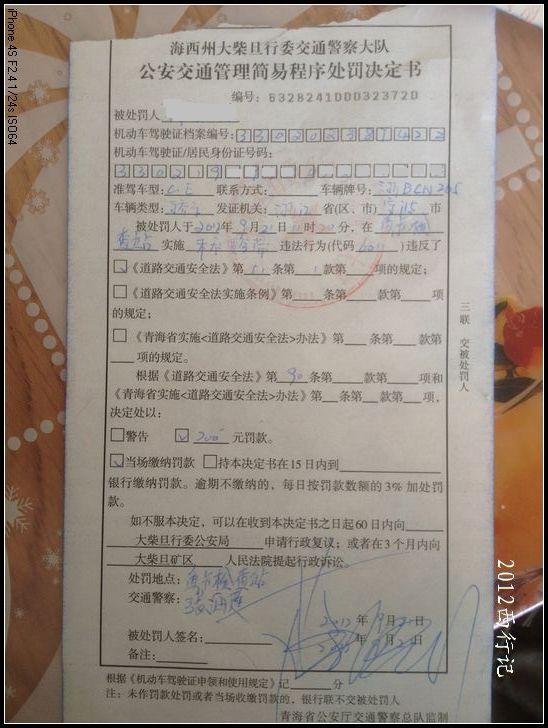 iPhone 4S F2.4 1/24s ISO64
海西州大柴旦行委交通警察大队
公安交通管理简易程序处罚决定书
编号：6328241000032372D
被处罚人
机动车驾驶证档案编号：
机动车驾驶证/居民身份证号码：
准驾车型：C1E 联系方式： 车辆牌号：浙BCN205
车辆类型： 发证机关：浙江 省（区、市） 市
被处罚人于2012年9月21日11时20分，在
实施 违法行为（代码6011）违反了
☑《道路交通安全法》第51条第1款第 项的规定；
□《道路交通安全法实施条例》第 条第 款第 项
的规定；
□《青海省实施<道路交通安全法>办法》第 条第 款第
项的规定。
根据《道路交通安全法》第90条第 款第 项和
《青海省实施<道路交通安全法>办法》第 条第 款第 项，
决定处以：
□警告 ☑ 200元罚款。
☑当场缴纳罚款 □持本决定书在15日内到
银行缴纳罚款。逾期不缴纳的，每日按罚款数额的3%加处
罚款。
如不服本决定，可以在收到本决定书之日起60日内向
大柴旦行委公安局 申请行政复议；或者在3个月内向
大柴旦矿区 人民法院提起行政诉讼。
处罚地点：
交通警察：
2012年9月21日
被处罚人签名： 年 月 日
备注：
根据《机动车驾驶证申领和使用规定》记 分
注：未作罚款处罚或者当场收缴罚款的，银行联不交被处罚人
青海省公安厅交通警察总队监制
三联 交被处罚人
2012西行记